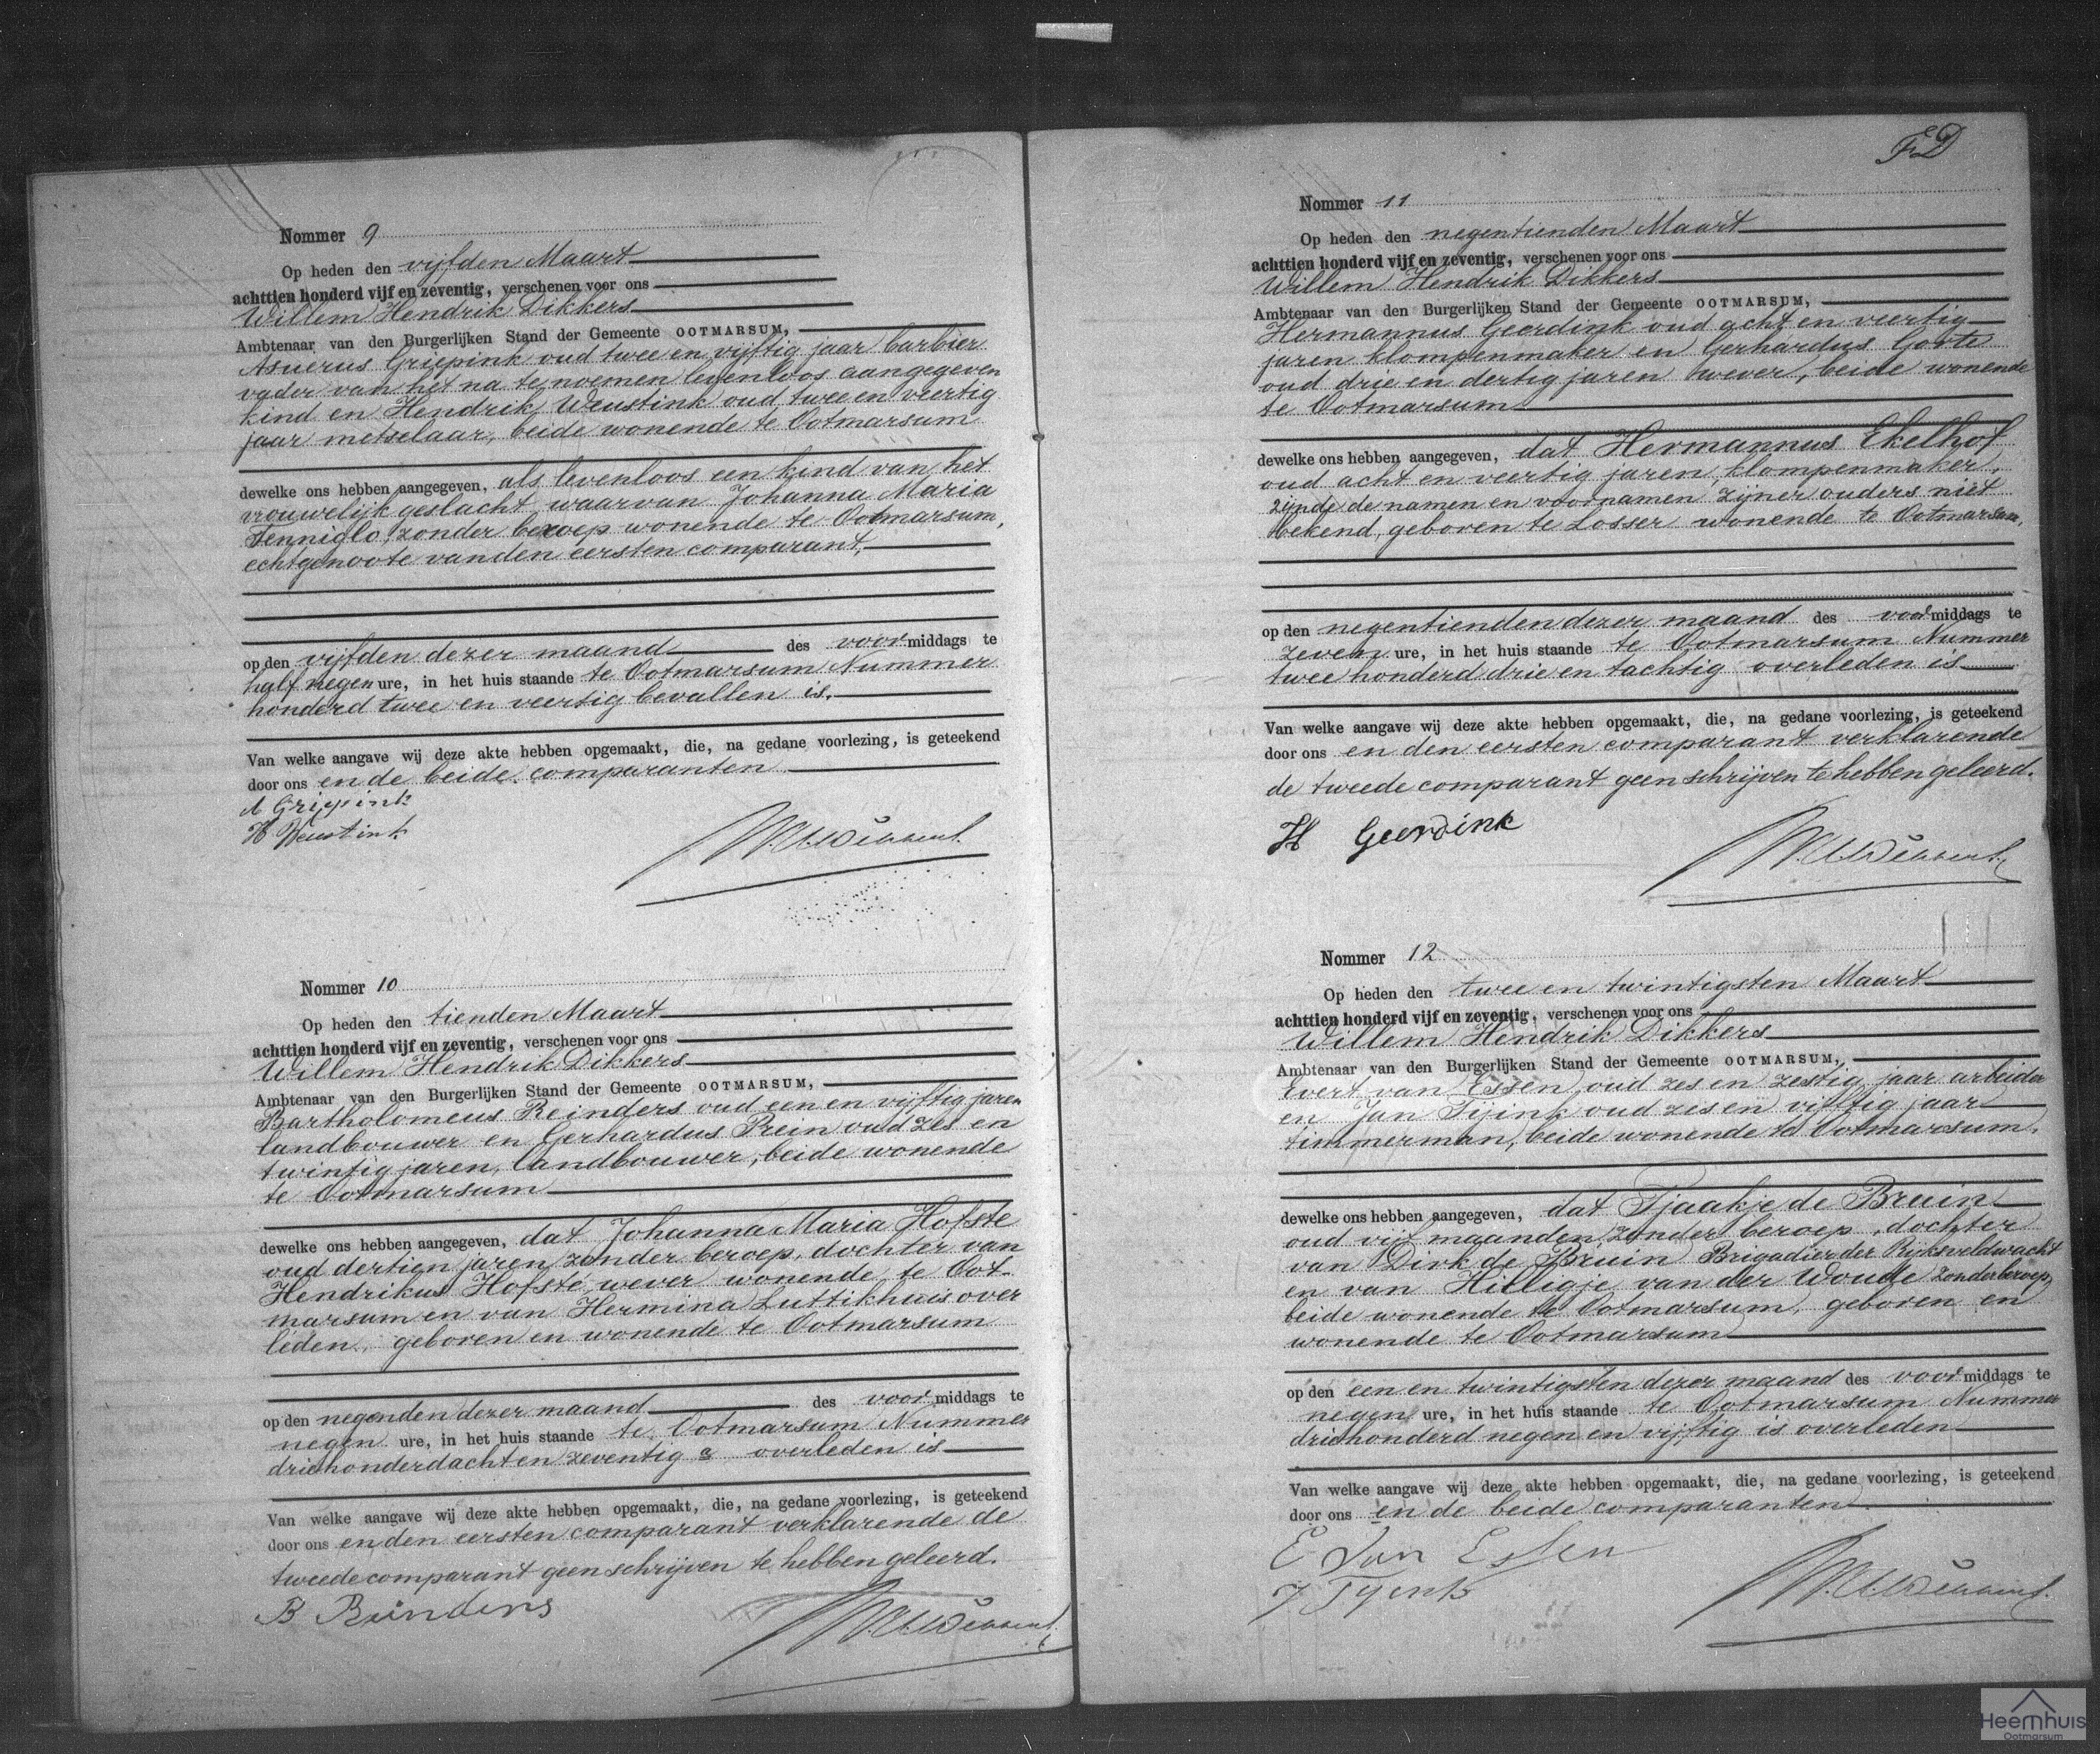 Nommer 9
Op heden den vijfden Maart
achttien honderd vijf en zeventig, verschenen voor ons
Willem Hendrik Dikkers
Ambtenaar van den Burgerlijken Stand der Gemeente OOTMARSUM,
Asuerus Griepink oud twee en vijftig jaar barbier
vader van het na te noemen levenloos aangegeven
kind en Hendrik Weustink oud twee en veertig
jaar metselaar, beide wonende te Ootmarsum
dewelke ons hebben aangegeven, als levenloos een kind van het
vrouwelijk geslacht waarvan Johanna Maria
Tenniglo, zonder beroep wonende te Ootmarsum,
echtgenoote van den eersten comparant,
op den vijfden dezer maand des voormiddags te
half negen ure, in het huis staande te Ootmarsum Nummer
honderd twee en veertig bevallen is.
Van welke aangave wij deze akte hebben opgemaakt, die, na gedane voorlezing, is geteekend
door ons en de beide comparanten
A Griepink
H Weustink
Nommer 10
Op heden den tienden Maart
achttien honderd vijf en zeventig, verschenen voor ons
Willem Hendrik Dikkers
Ambtenaar van den Burgerlijken Stand der Gemeente OOTMARSUM,
Bartholomeus Reinders oud een en vijftig jaren
landbouwer en Gerhardus Prein oud zes en
twintig jaren, landbouwer, beide wonende
te Ootmarsum
dewelke ons hebben aangegeven, dat Johanna Maria Hofste
oud dertien jaren zonder beroep, dochter van
Hendrikus Hofste, wever wonende te Oot-
marsum en van Hermina Luttikhuis over
leden, geboren en wonende te Ootmarsum
op den negenden dezer maand des voormiddags te
negen ure, in het huis staande te Ootmarsum Nummer
driehonderd acht en zeventig a overleden is
Van welke aangave wij deze akte hebben opgemaakt, die, na gedane voorlezing, is geteekend
door ons en den eersten comparant verklarende de
tweede comparant geen schrijven te hebben geleerd.
B Reinders
FD
Nommer 11
Op heden den negentienden Maart
achttien honderd vijf en zeventig, verschenen voor ons
Willem Hendrik Dikkers
Ambtenaar van den Burgerlijken Stand der Gemeente OOTMARSUM,
Hermannus Geerdink oud acht en veertig
jaren klompenmaker en Gerhardus Grote
oud drie en dertig jaren wever, beide wonende
te Ootmarsum
dewelke ons hebben aangegeven, dat Hermannus Ekelhof
oud acht en veertig jaren, klompenmaker,
zijnde de namen en voornamen zijner ouders niet
bekend, geboren te Losser wonende te Ootmarsum,
op den negentienden dezer maand des voormiddags te
zeven ure, in het huis staande te Ootmarsum Nummer
twee honderd drie en tachtig overleden is
Van welke aangave wij deze akte hebben opgemaakt, die, na gedane voorlezing, is geteekend
door ons en den eersten comparant verklarende
de tweede comparant geen schrijven te hebben geleerd.
H Geerdink
Nommer 12
Op heden den twee en twintigsten Maart
achttien honderd vijf en zeventig, verschenen voor ons
Willem Hendrik Dikkers
Ambtenaar van den Burgerlijken Stand der Gemeente OOTMARSUM,
Evert van Essen oud zes en zestig jaar arbeider
en Jan Tijink oud zes en vijftig jaar
timmerman, beide wonende te Ootmarsum.
dewelke ons hebben aangegeven, dat Tjaakje de Bruin
oud vijf maanden, zonder beroep, dochter
van Dirk de Bruin Brigadier der Rijksveldwacht
en van Hilligje van der Woude zonder beroep
beide wonende te Ootmarsum, geboren en
wonende te Ootmarsum
op den een en twintigsten dezer maand des voormiddags te
negen ure, in het huis staande te Ootmarsum Nummer
driehonderd negen en vijftig is overleden
Van welke aangave wij deze akte hebben opgemaakt, die, na gedane voorlezing, is geteekend
door ons en de beide comparanten
E van Essen
J Tyink
Heemhuis
Ootmarsum